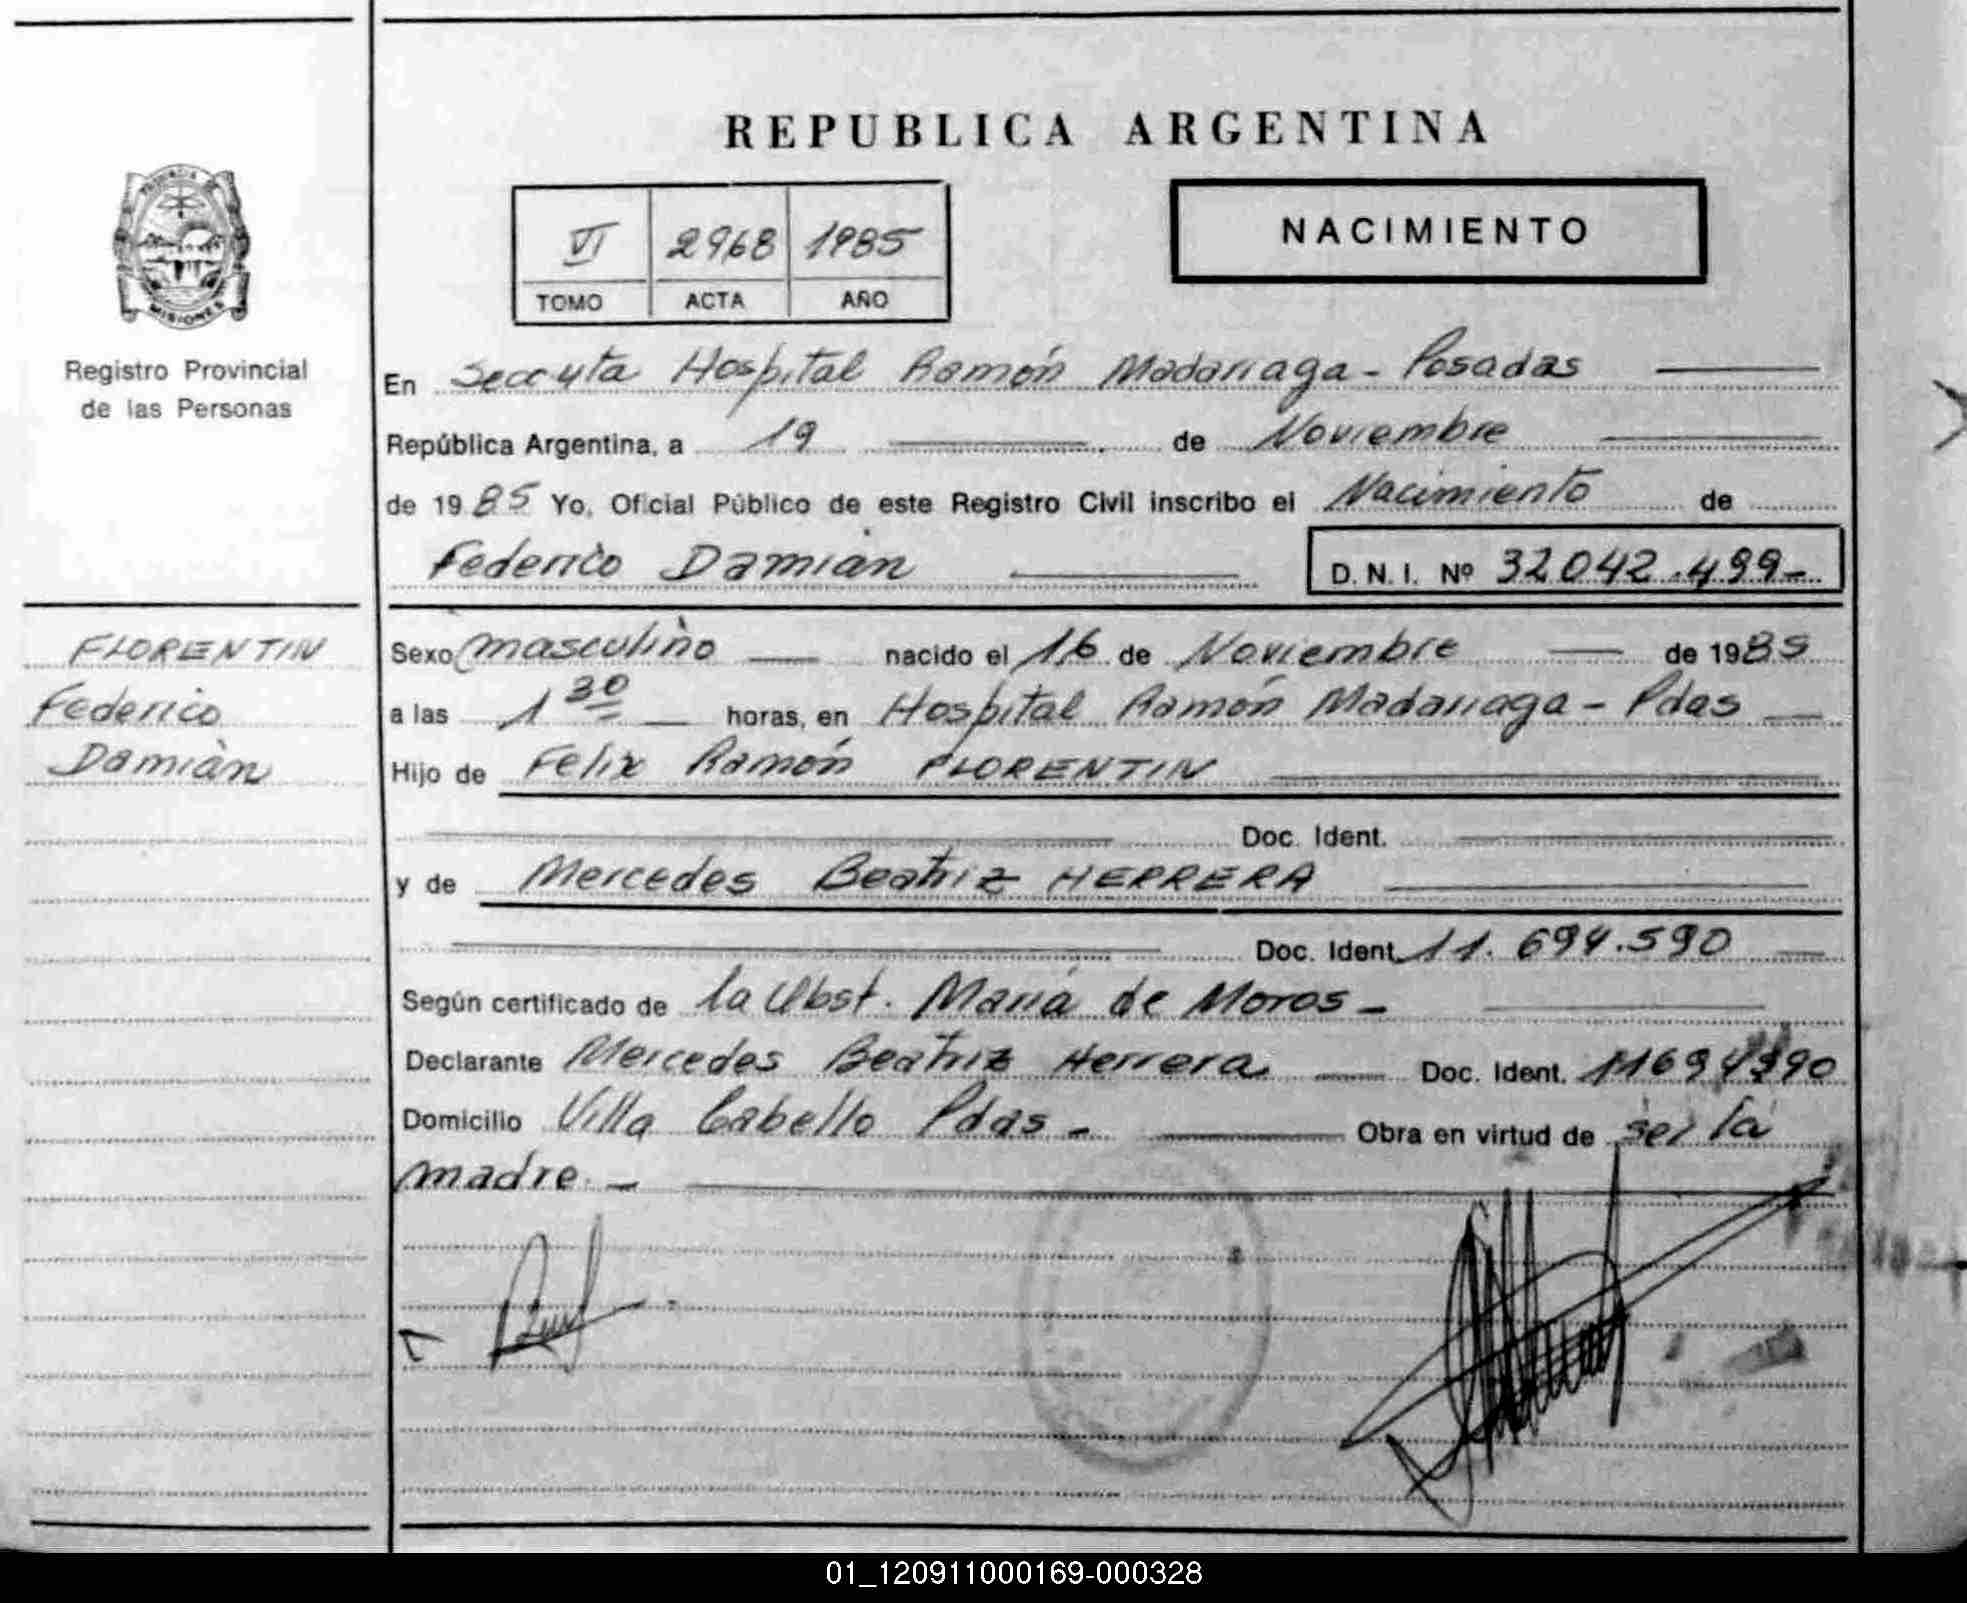 REPUBLICA ARGENTINA
NACIMIENTO
VI 2968 1985
TOMO ACTA AÑO
PROVINCIA DE
MISIONES
Registro Provincial
de las Personas
En Seccuta Hospital Ramón Madariaga - Posadas
República Argentina, a 19 de Noviembre
de 1985 Yo, Oficial Público de este Registro Civil inscribo el Nacimiento de
Federico Damián D.N.I. Nº 32.042.499-
FLORENTIN
Federico
Damián
Sexo masculino nacido el 16 de Noviembre de 1985
a las 1 30 horas, en Hospital Ramón Madariaga - Pdas
Hijo de Felix Ramón FLORENTIN
Doc. Ident.
y de Mercedes Beatriz HERRERA
Doc. Ident. 11.694.590
Según certificado de la Obst. María de Moros -
Declarante Mercedes Beatriz Herrera Doc. Ident. 11694590
Domicilio Villa Cabello Pdas - Obra en virtud de ser la
madre. -
01_120911000169-000328